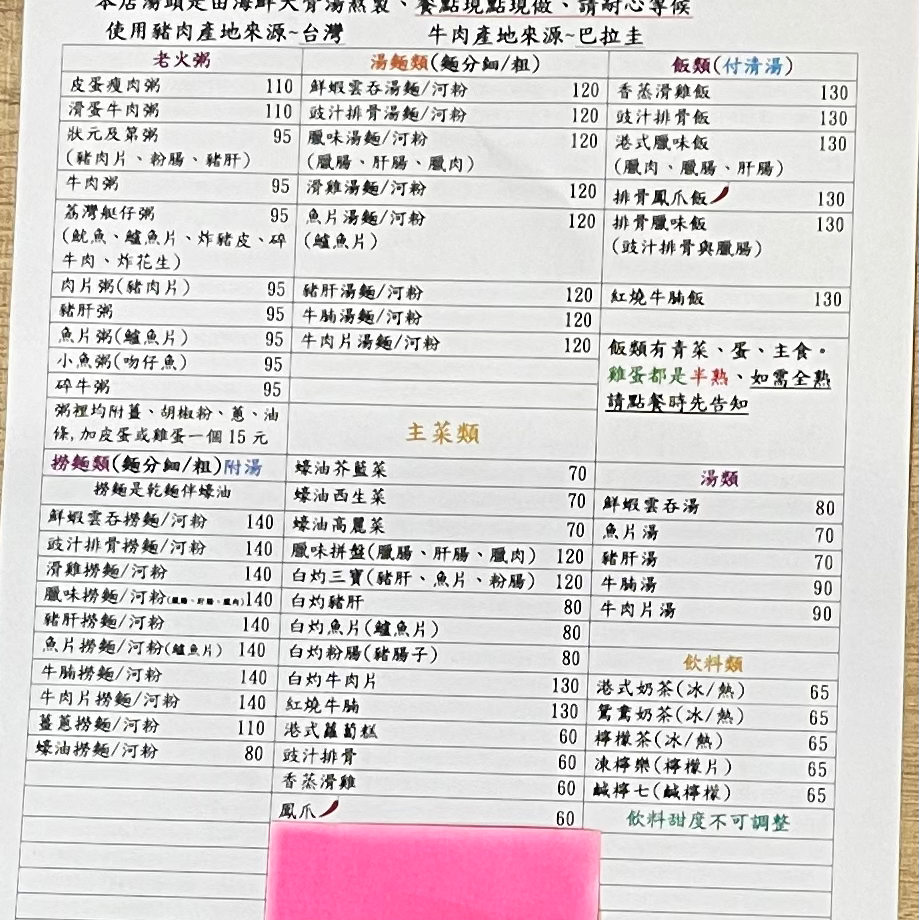 本店湯頭是由海鮮大骨湯熬製、餐點現點現做、請耐心等候
使用豬肉產地來源~台灣 牛肉產地來源~巴拉圭
老火粥
皮蛋瘦肉粥 110
滑蛋牛肉粥 110
狀元及第粥 95
(豬肉片、粉腸、豬肝)
牛肉粥 95
荔灣艇仔粥 95
(魷魚、鱸魚片、炸豬皮、碎
牛肉、炸花生)
肉片粥(豬肉片) 95
豬肝粥 95
魚片粥(鱸魚片) 95
小魚粥(吻仔魚) 95
碎牛粥 95
粥裡均附薑、胡椒粉、蔥、油
條,加皮蛋或雞蛋一個 15 元
撈麵類(麵分細/粗)附湯
撈麵是乾麵伴蠔油
鮮蝦雲吞撈麵/河粉 140
豉汁排骨撈麵/河粉 140
滑雞撈麵/河粉 140
臘味撈麵/河粉(臘腸、肝腸、臘肉) 140
豬肝撈麵/河粉 140
魚片撈麵/河粉(鱸魚片) 140
牛腩撈麵/河粉 140
牛肉片撈麵/河粉 140
薑蔥撈麵/河粉 110
蠔油撈麵/河粉 80
湯麵類(麵分細/粗)
鮮蝦雲吞湯麵/河粉 120
豉汁排骨湯麵/河粉 120
臘味湯麵/河粉 120
(臘腸、肝腸、臘肉)
滑雞湯麵/河粉 120
魚片湯麵/河粉 120
(鱸魚片)
豬肝湯麵/河粉 120
牛腩湯麵/河粉 120
牛肉片湯麵/河粉 120
主菜類
蠔油芥藍菜 70
蠔油西生菜 70
蠔油高麗菜 70
臘味拼盤(臘腸、肝腸、臘肉) 120
白灼三寶(豬肝、魚片、粉腸) 120
白灼豬肝 80
白灼魚片(鱸魚片) 80
白灼粉腸(豬腸子) 80
白灼牛肉片 130
紅燒牛腩 130
港式蘿蔔糕 60
豉汁排骨 60
香蒸滑雞 60
鳳爪 60
飯類(付清湯)
香蒸滑雞飯 130
豉汁排骨飯 130
港式臘味飯 130
(臘肉、臘腸、肝腸)
排骨鳳爪飯 130
排骨臘味飯 130
(豉汁排骨與臘腸)
紅燒牛腩飯 130
飯類有青菜、蛋、主食。
雞蛋都是半熟、如需全熟
請點餐時先告知
湯類
鮮蝦雲吞湯 80
魚片湯 70
豬肝湯 70
牛腩湯 90
牛肉片湯 90
飲料類
港式奶茶(冰/熱) 65
鴛鴦奶茶(冰/熱) 65
檸檬茶(冰/熱) 65
凍檸樂(檸檬片) 65
鹹檸七(鹹檸檬) 65
飲料甜度不可調整